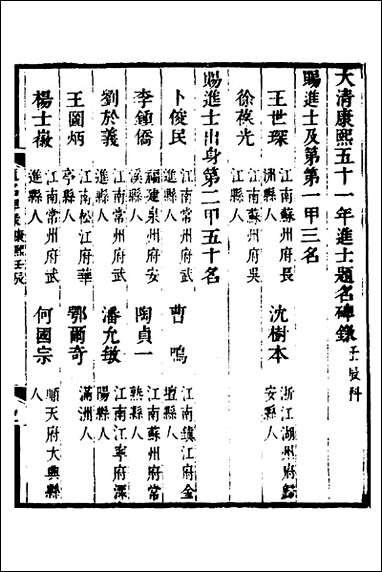 大清康熙五十一年進士題名碑錄壬辰科
賜進士及第第一甲三名
王世琛 江南蘇州府長洲縣人 沈樹本 浙江湖州府歸安縣人
徐葆光 江南蘇州府吳江縣人
賜進士出身第二甲五十名
卜俊民 江南常州府武進縣人 曹鳴 江南鎮江府金壇縣人
李鍾僑 福建泉州府安溪縣人 陶貞一 江南蘇州府常熟縣人
劉於義 江南常州府武進縣人 潘允敏 江南江寧府溧陽縣人
王圖炳 江南松江府華亭縣人 鄂爾奇 滿洲人
楊士徽 江南常州府武進縣人 何國宗 順天府大興縣人